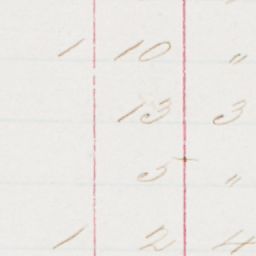 1 10 "
13 3
5 "
1 2 4